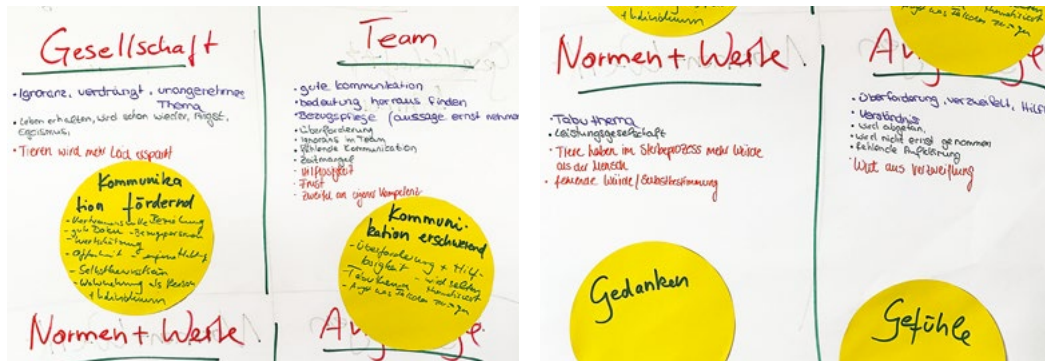 Gesellschaft
• Ignoranz, verdrängt, unangenehmes
Thema
• Leben erhalten, wird schon wieder, Angst,
Egoismus,
• Tieren wird mehr Leid erspart
Kommunika
tion fördernd
- Vertrauensvolle Beziehung
- gute Doku - Bezugsperson
- Wertschätzung
- Offenheit - eigene Haltung
- Selbstbewusstsein
- Wahrnehmung als Person
+ Individuum
Team
• gute kommunikation
• bedeutung herraus finden
• Bezugspflege (aussage ernst nehmen
• Überforderung
• Ignoranz im Team
• fehlende Kommunikation
• Zeitmangel
• Hilflosigkeit
• Frust
• Zweifel an eigener Kompetenz
Kommuni-
kation erschwerend
- Überforderung + Hilf-
losigkeit - wird selten
- Tabuthema thematisiert
- Angst was Falsches zu sagen
Normen + Werte
+ Individuum
Normen + Werte
• Tabuthema
• Leistungsgesellschaft
• Tiere haben im Sterbeprozess mehr Würde
als der Mensch
• fehlende Würde / Selbstbestimmung
Gedanken
thematisiert
Angst was Falsches zu sagen
• Überforderung, verzweifelt, Hilfl
• Verständnis
• wird abgetan,
• wird nicht ernst genommen
• fehlende Aufklärung
• Wut aus Verzweiflung
Gefühle